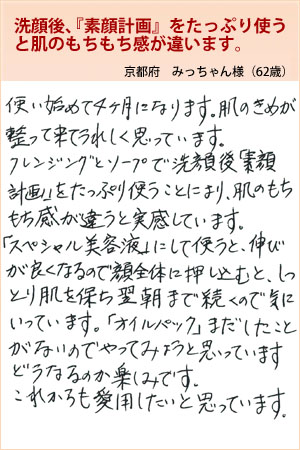 洗顔後、『素顔計画』をたっぷり使う
と肌のもちもち感が違います。
京都府　みっちゃん様（62歳）
使い始めて4ヶ月になります。肌のきめが
整って来てうれしく思っています。
クレンジングとソープで洗顔後「素顔
計画」をたっぷり使うことにより、肌のもち
もち感が違うと実感しています。
「スペシャル美容液」にして使うと、伸び
が良くなるので顔全体に押し込むと、しっ
とり肌を保ち翌朝まで続くので気に
いっています。「オイルパック」まだしたこと
がないのでやってみようと思っています
どうなるのか楽しみです。
これからも愛用したいと思っています。